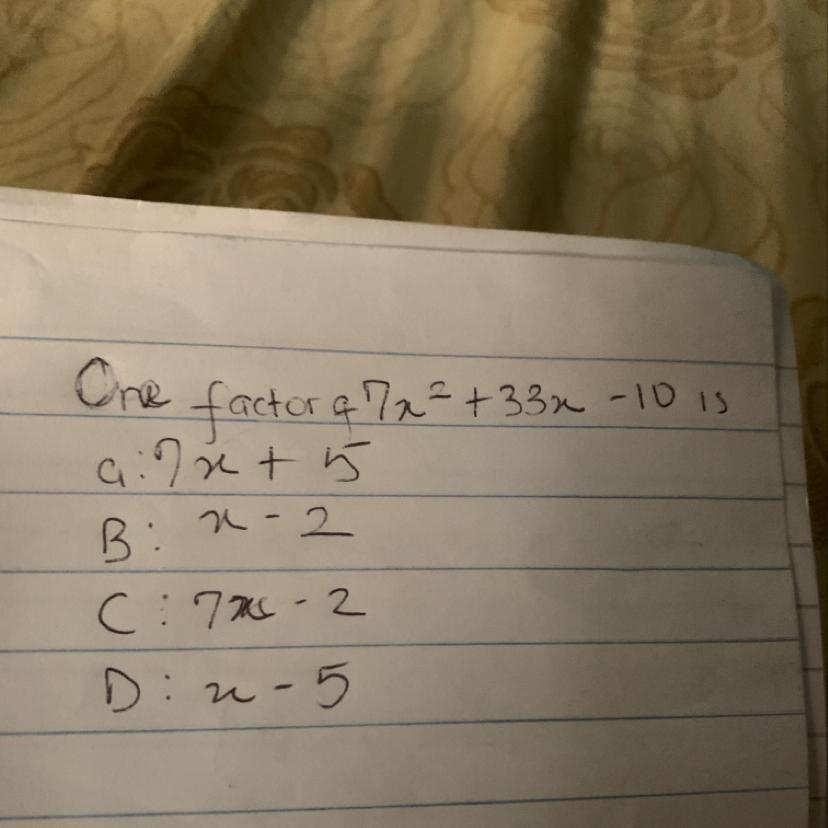 One factor of 7x² + 33x - 10 is
a: 7x + 5
B: x - 2
C: 7x - 2
D: x - 5